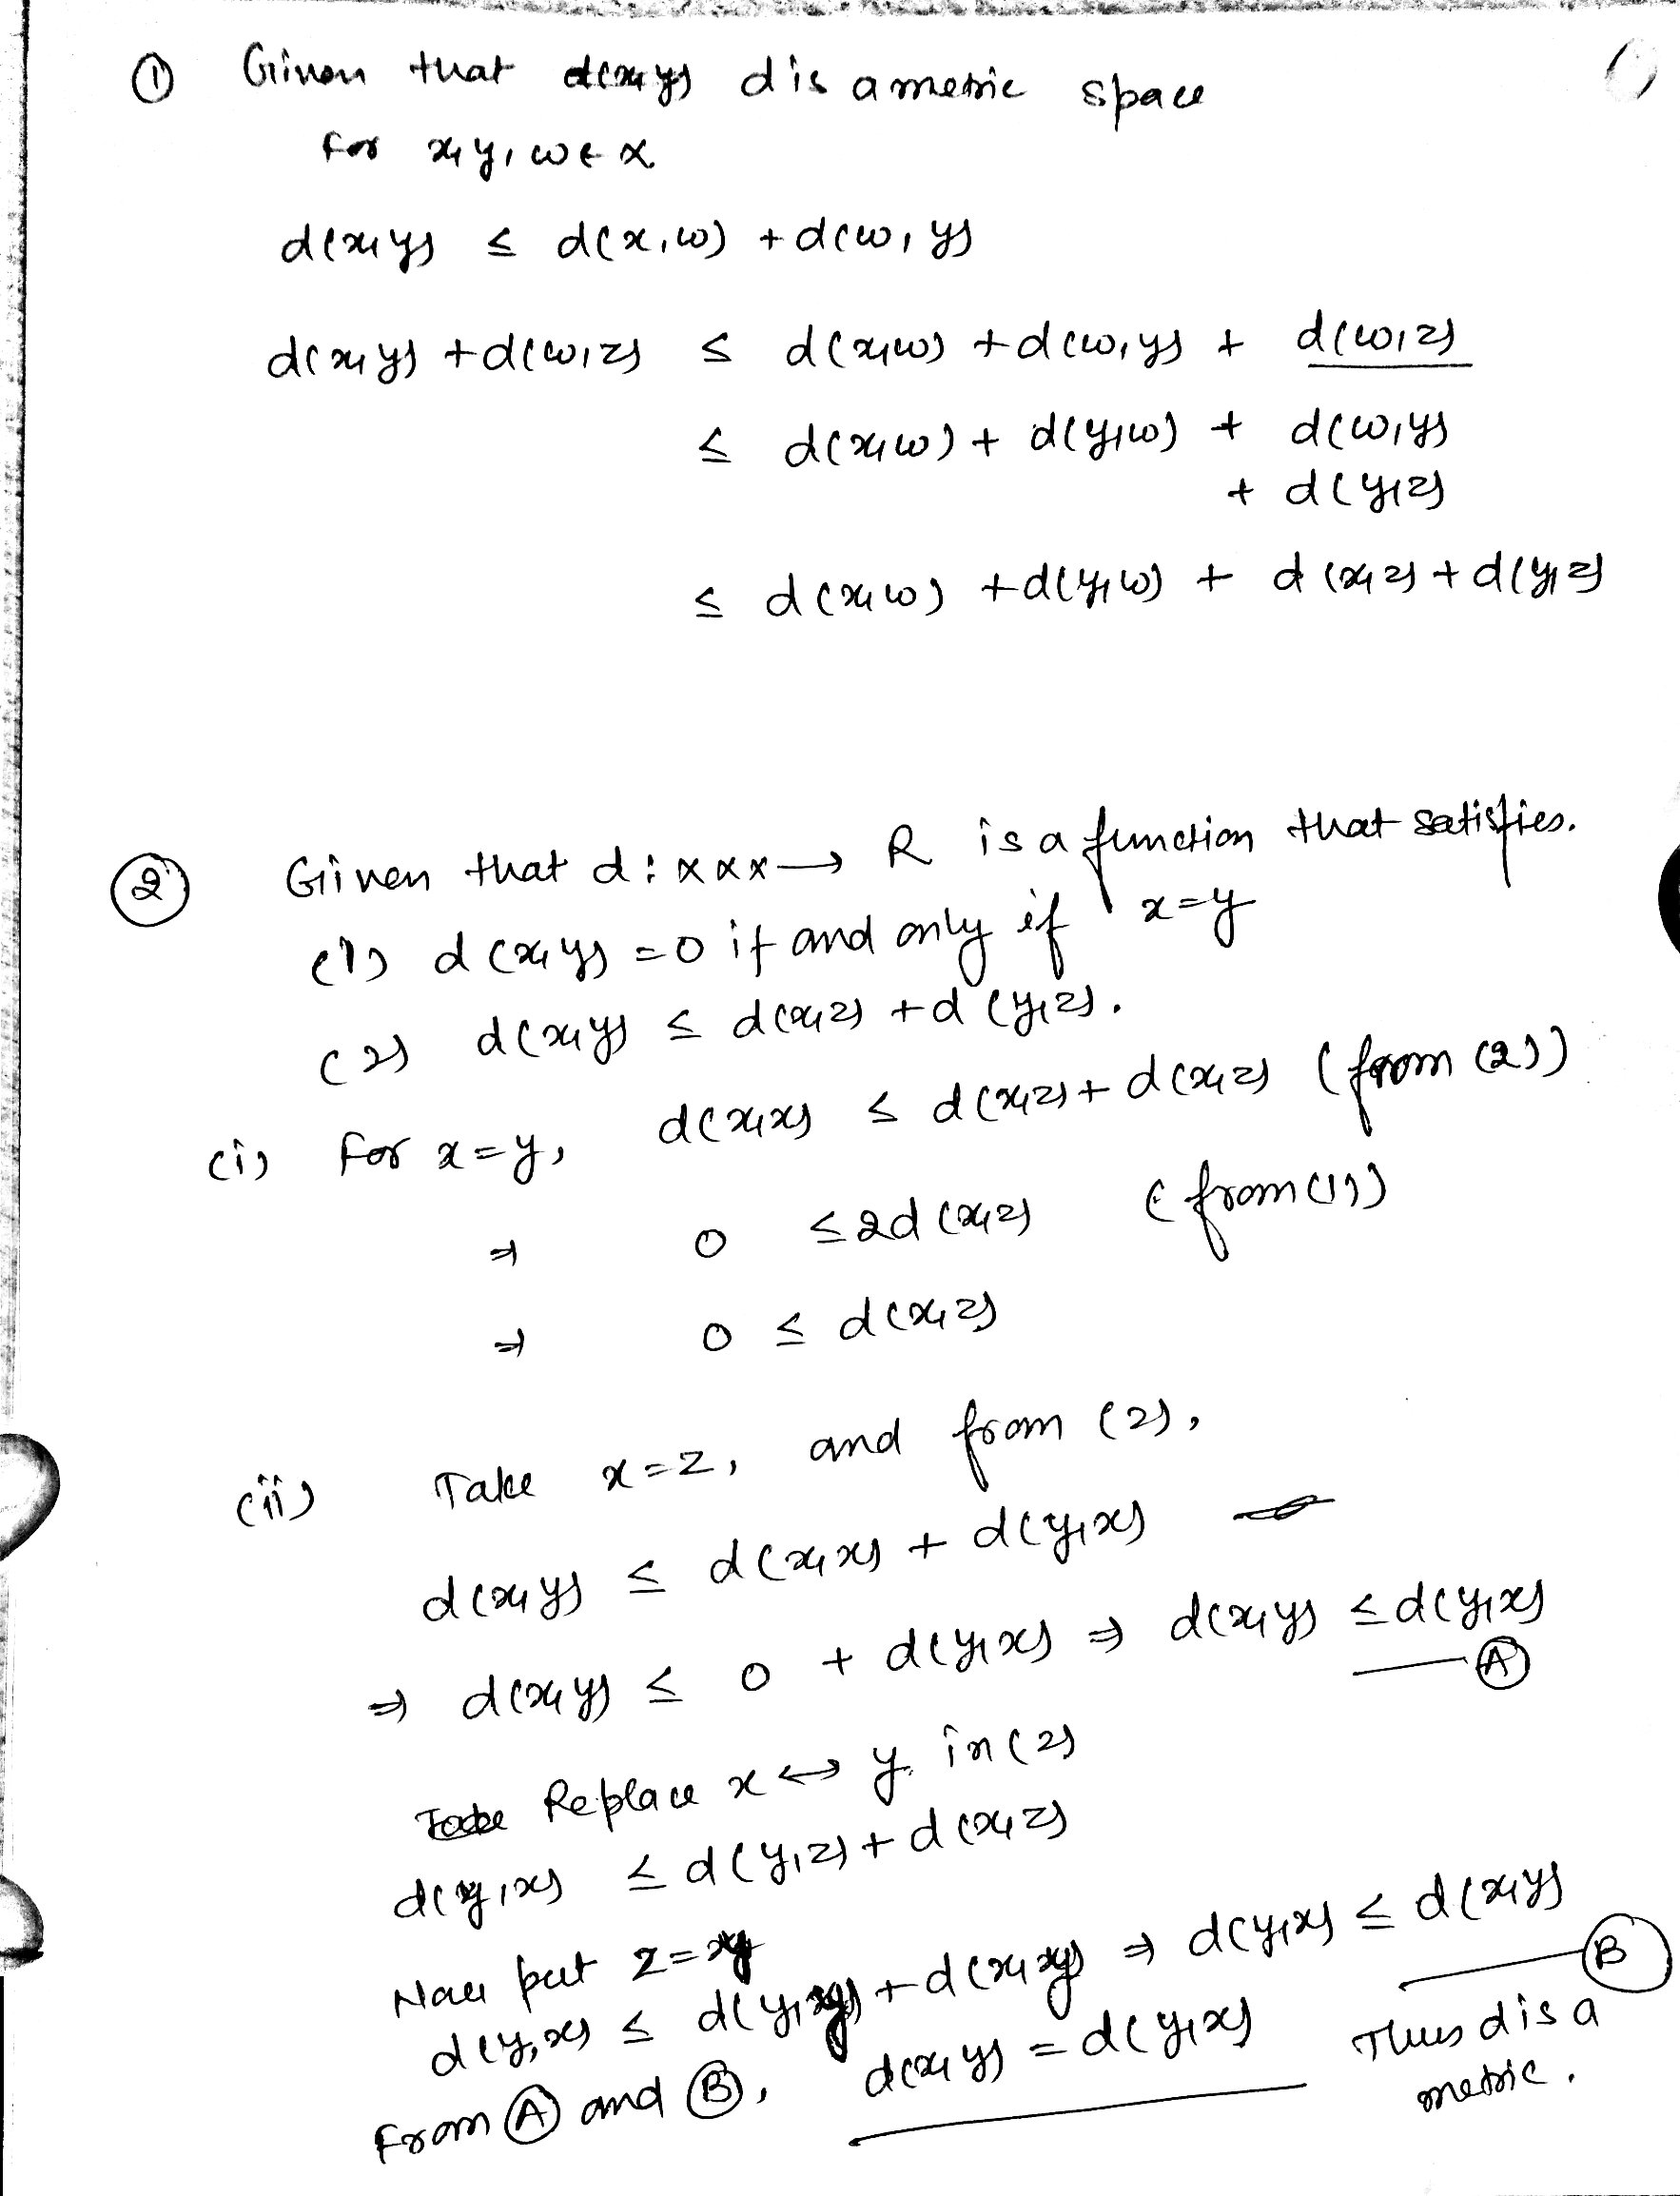 ① Given that d is a metric space
For x, y, w ∈ X
d(x,y) ≤ d(x,w) + d(w,y)
d(x,y) + d(w,z) ≤ d(x,w) + d(w,y) + d(w,z)
≤ d(x,w) + d(y,w) + d(w,y)
+ d(y,z)
≤ d(x,w) + d(y,w) + d(x,z) + d(y,z)
② Given that d : X×X → R is a function that satisfies.
(1) d(x,y) = 0 if and only if x=y
(2) d(x,y) ≤ d(x,z) + d(y,z).
(i) For x=y, d(x,x) ≤ d(x,z) + d(x,z) (from (2))
⇒ 0 ≤ 2d(x,z) (from (1))
⇒ 0 ≤ d(x,z)
(ii) Take x=z, and from (2),
d(x,y) ≤ d(x,x) + d(y,x)
⇒ d(x,y) ≤ 0 + d(y,x) ⇒ d(x,y) ≤ d(y,x)
Ⓐ
Replace x ↔ y in (2)
d(y,x) ≤ d(y,z) + d(x,z)
Now put z=y
d(y,x) ≤ d(y,y) + d(x,y) ⇒ d(y,x) ≤ d(x,y)
Ⓑ
From Ⓐ and Ⓑ, d(x,y) = d(y,x) Thus d is a
metric.